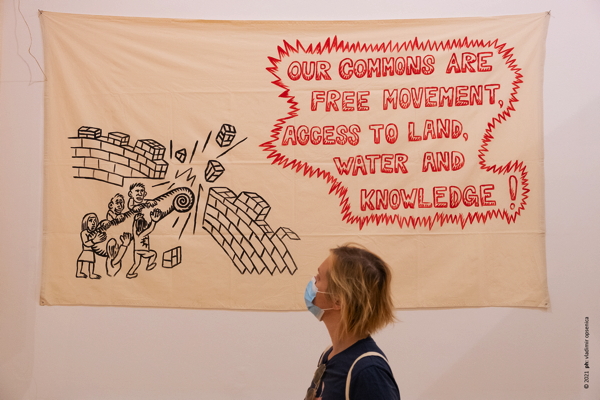 OUR COMMONS ARE
FREE MOVEMENT,
ACCESS TO LAND,
WATER AND
KNOWLEDGE!
© 2021 ph: vladimir opsenica